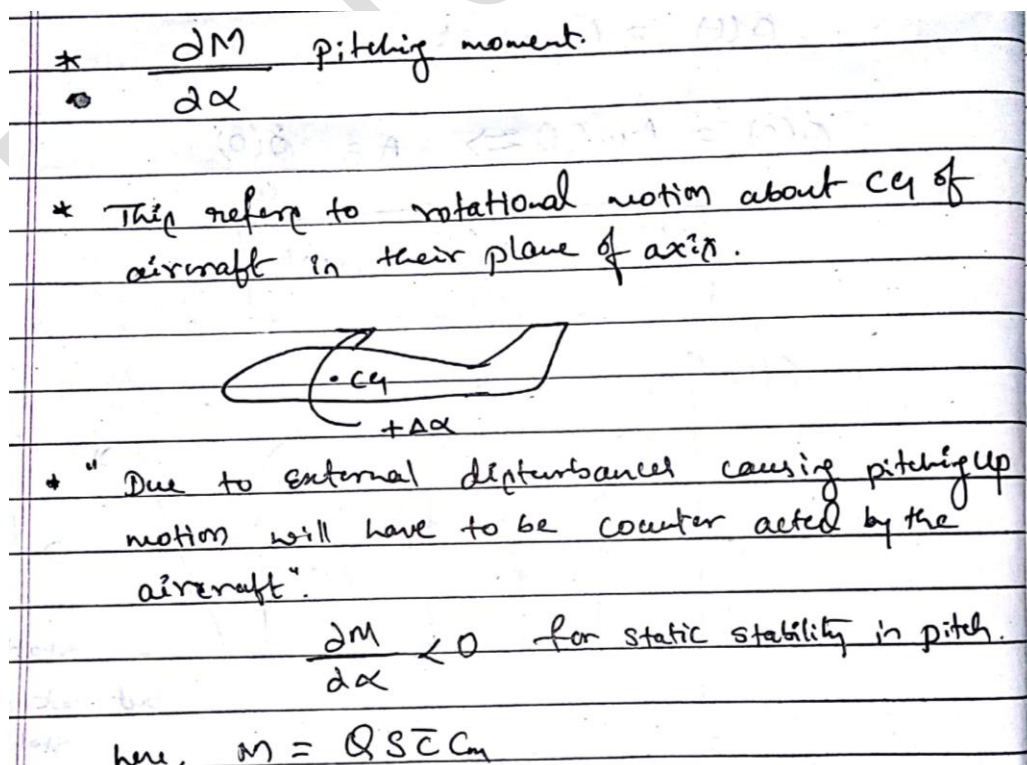 * ∂M/∂α pitching moment.
* This refers to rotational motion about CG of
aircraft in their plane of axis.
. CG
+Δα
* " Due to external disturbances causing pitching up
motion will have to be counter acted by the
aircraft".
∂M/∂α < 0 for static stability in pitch.
here, M = QSc̄Cm